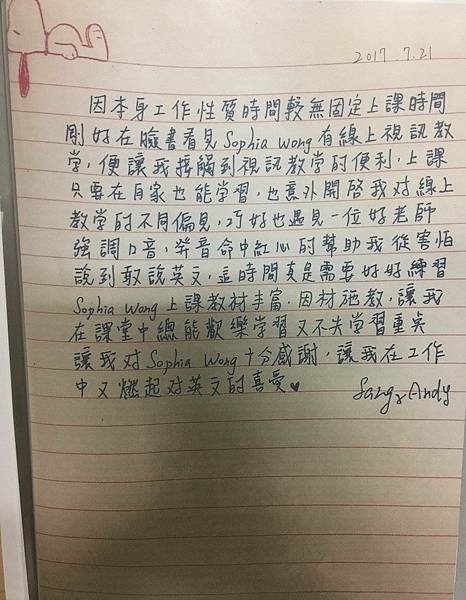 2017 7.21
因本身工作性質時間較無固定上課時間
剛好在臉書看見Sophia Wong有線上視訊教
学,便讓我接觸到視訊教学的便利,上課
只要在自家也能学習,也意外開啓我对線上
教学的不同偏見,巧好也遇見一位好老師
強調口音,发音命中紅心的幫助我從害怕
說到敢說英文,這時間真是需要好好練習
Sophia Wong上課教材丰富.因材施教,讓我
在課堂中總能歡樂学習又不失学習重点
讓我对Sophia Wong十分感謝,讓我在工作
中又燃起对英文的喜愛♥
Andy